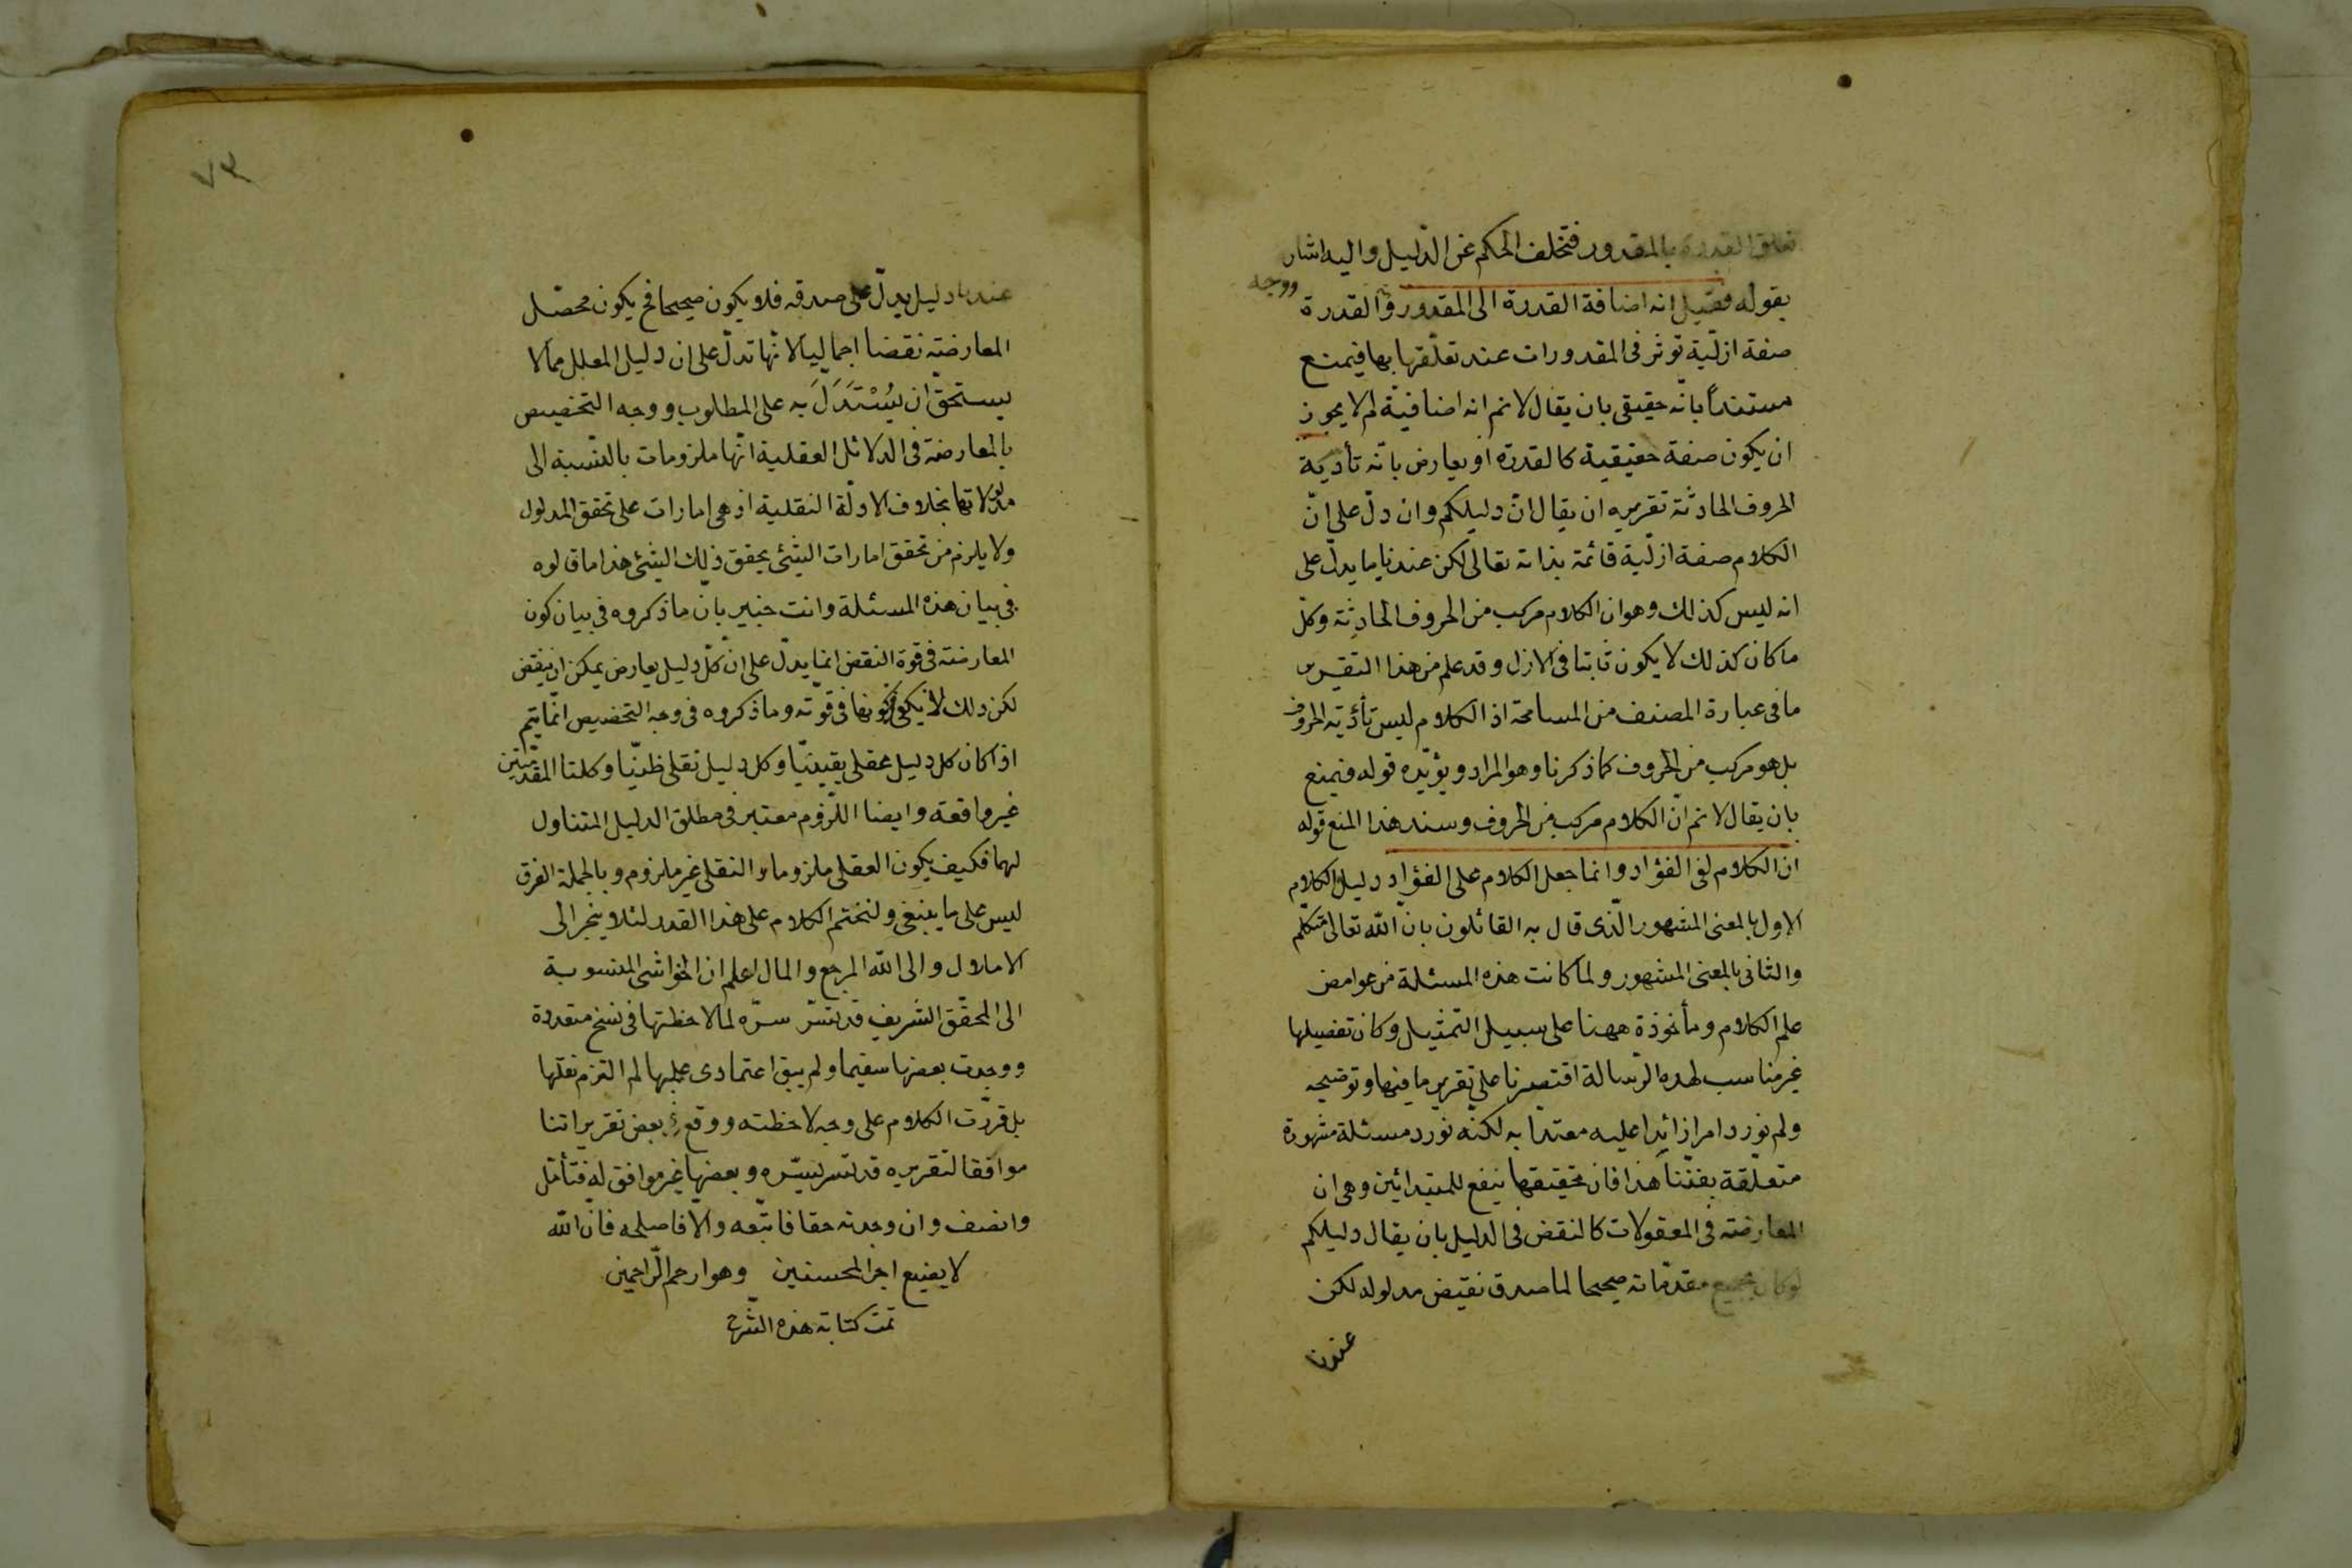 تعلق القدرة بالمقدور فتخلف الحكم عن الدّليل واليه اشار
بقوله فقيل انه اضافة القدرة الى المقدور والقدرة
ووجه
صفة ازلّية توثر فى المقدورات عند تعلّقها بها فيمنع
مستنداً بانّه حقيقى بان يقال لانم انه اضافية لم لا يجوز
ان يكون صفة حقيقية كالقدرة او يعارض بانّه تأدية
الحروف الحادثة تقريره ان يقال انّ دليلكم وان دلّ على انّ
الكلام صفة ازلّية قائمة بذاته تعالى لكن عندنا ما يدلّ على
انه ليس كذلك وهو ان الكلام مركب من الحروف الحادثة وكلّ
ما كان كذلك لا يكون ثابتا فى الازل وقد علم من هذا التقرير
ما فى عبارة المصنف من المسامحة اذ الكلام ليس تأدّية الحروف
بل هو مركب من الحروف كما ذكرنا وهو المراد ويؤيّده قوله فيمنع
بان يقال لانم انّ الكلام مركب من الحروف وسند هذا المنع قوله
ان الكلام لفى الفؤاد وانما جعل الكلام على الفؤاد دليلا الكلام
الاول بالمعنى المشهور الّذى قال به القائلون بانّ الله تعالى متكلّم
والثانى بالمعنى المشهور ولما كانت هذه المسئلة من غوامض
علم الكلام ومأخوذة ههنا على سبيل التمثيل وكان تفصيلها
غير مناسب لهذه الرّسالة اقتصرنا على تقرير ما فيها وتوضيحه
ولم نورد امرا زائدا عليه معتدّا به لكنّه نورد مسئلة مشهورة
متعلّقة بفنّنا هذا فان تحقيقها ينفع للمبتدائين وهى ان
المعارضة فى المعقولات كالنقض فى الدليل بان يقال دليلكم
لو كان بجميع مقدّماته صحيحا لما صدق نقيض مدلوله لكن
عندنا
٧٣
عندنا دليل يدلّ على صدقه فلا يكون صحيحا فح يكون محصّل
المعارضة نقضا اجماليا لانّها تدلّ على ان دليل المعلل مما لا
يستحقّ ان يُسْتَدَلَّ به على المطلوب ووجه التخصيص
بالمعارضة فى الدلائل العقلية انّها ملزومات بالنّسبة الى
مدلولاتها بخلاف الادلّة النقلية اذ هى امارات على تحقق المدلول
ولا يلزم من تحقق امارات الشئ تحقق ذلك الشئ هذا ما قالوه
فى بيان هذه المسئلة وانت خبير بانّ ما ذكروه فى بيان كون
المعارضة فى قوة النقض انما يدلّ على انّ كلّ دليل يعارض يمكن ان ينقض
لكن ذلك لا يكفى كونها فى قوّته وما ذكروه فى وجه التخصيص انّما يتم
اذا كان كل دليل عقلى يقينيّا وكل دليل نقلى ظنيّا وكلتا المقدّمتين
غير واقعة وايضا اللّزوم معتبر فى مطلق الدليل المتناول
لهما فكيف يكون العقلى ملزوما والنقلى غير ملزوم وبالجملة الفرق
ليس على ما ينبغى ولنختم الكلام على هذا القدر لئلا ينجر الى
الاملال والى الله المرجع والمال اعلم ان الحواشى المنسوبة
الى المحقّق الشريف قدّس سرّه لما لاحظتها فى نسخ متعددة
ووجدت بعضها سقيما ولم يبق اعتمادى عليها لم التزم نقلها
بل قرّرت الكلام على وجه لاحظته ووقع بعض تقريراتنا
موافقا لتقريره قدّس سرّه وبعضها غير موافق له فتأمّل
وانصف وان وجدته حقا فاتّبعه والّا فاصلحه فانّ الله
لا يضيع اجر المحسنين وهو ارحم الرّاحمين
تمت كتابة هذه الشّرح